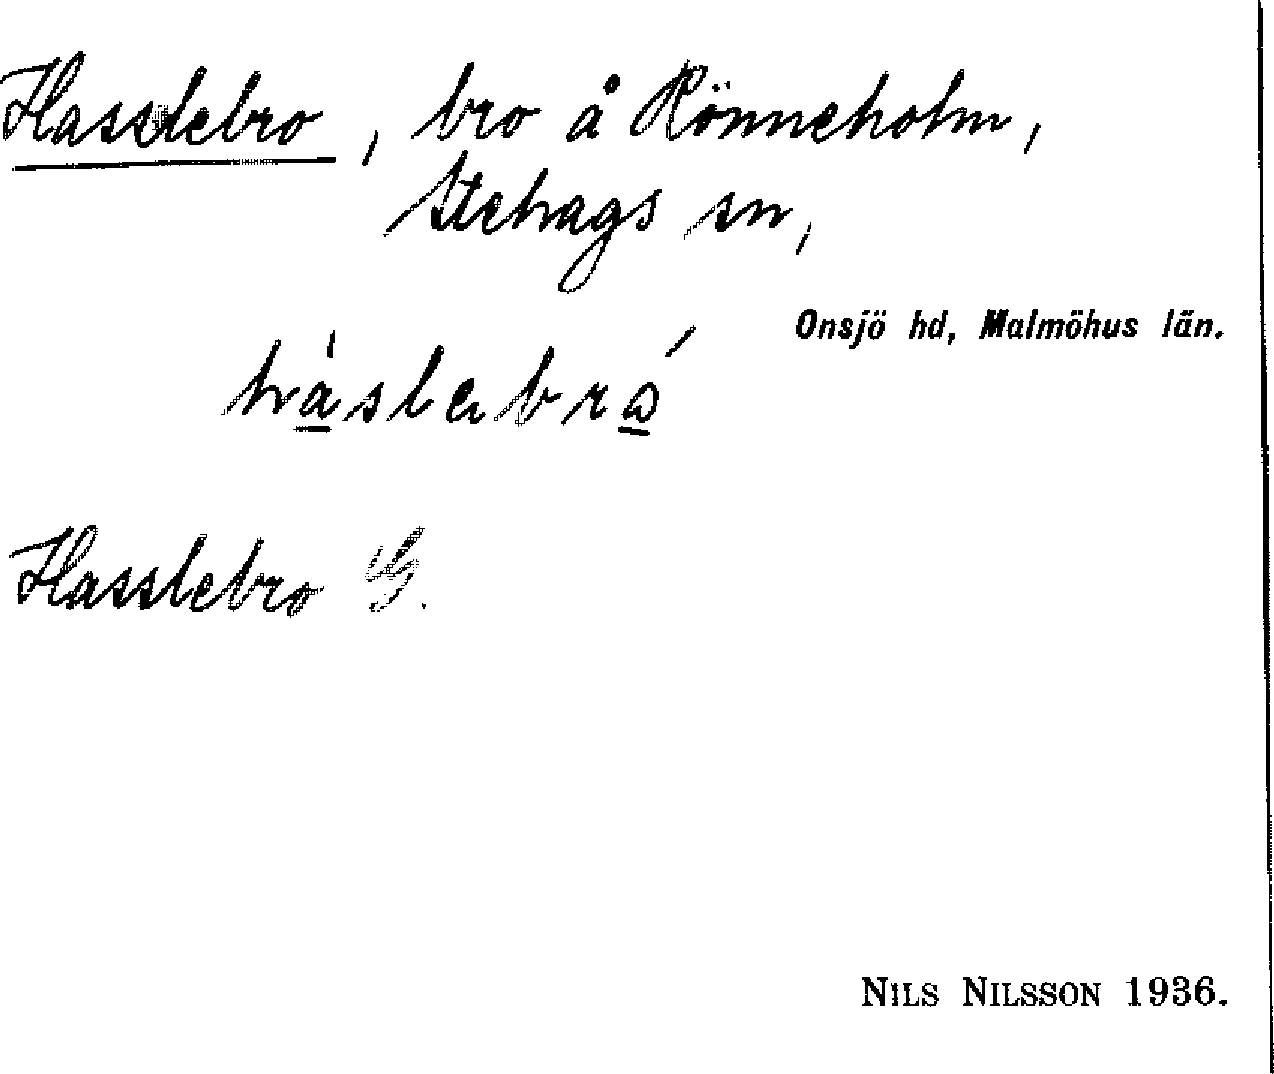 Hasslebro, bro å Rönneholm,
Stehags sn,
Onsjö hd, Malmöhus län.
Hasslebro
NILS NILSSON 1936.